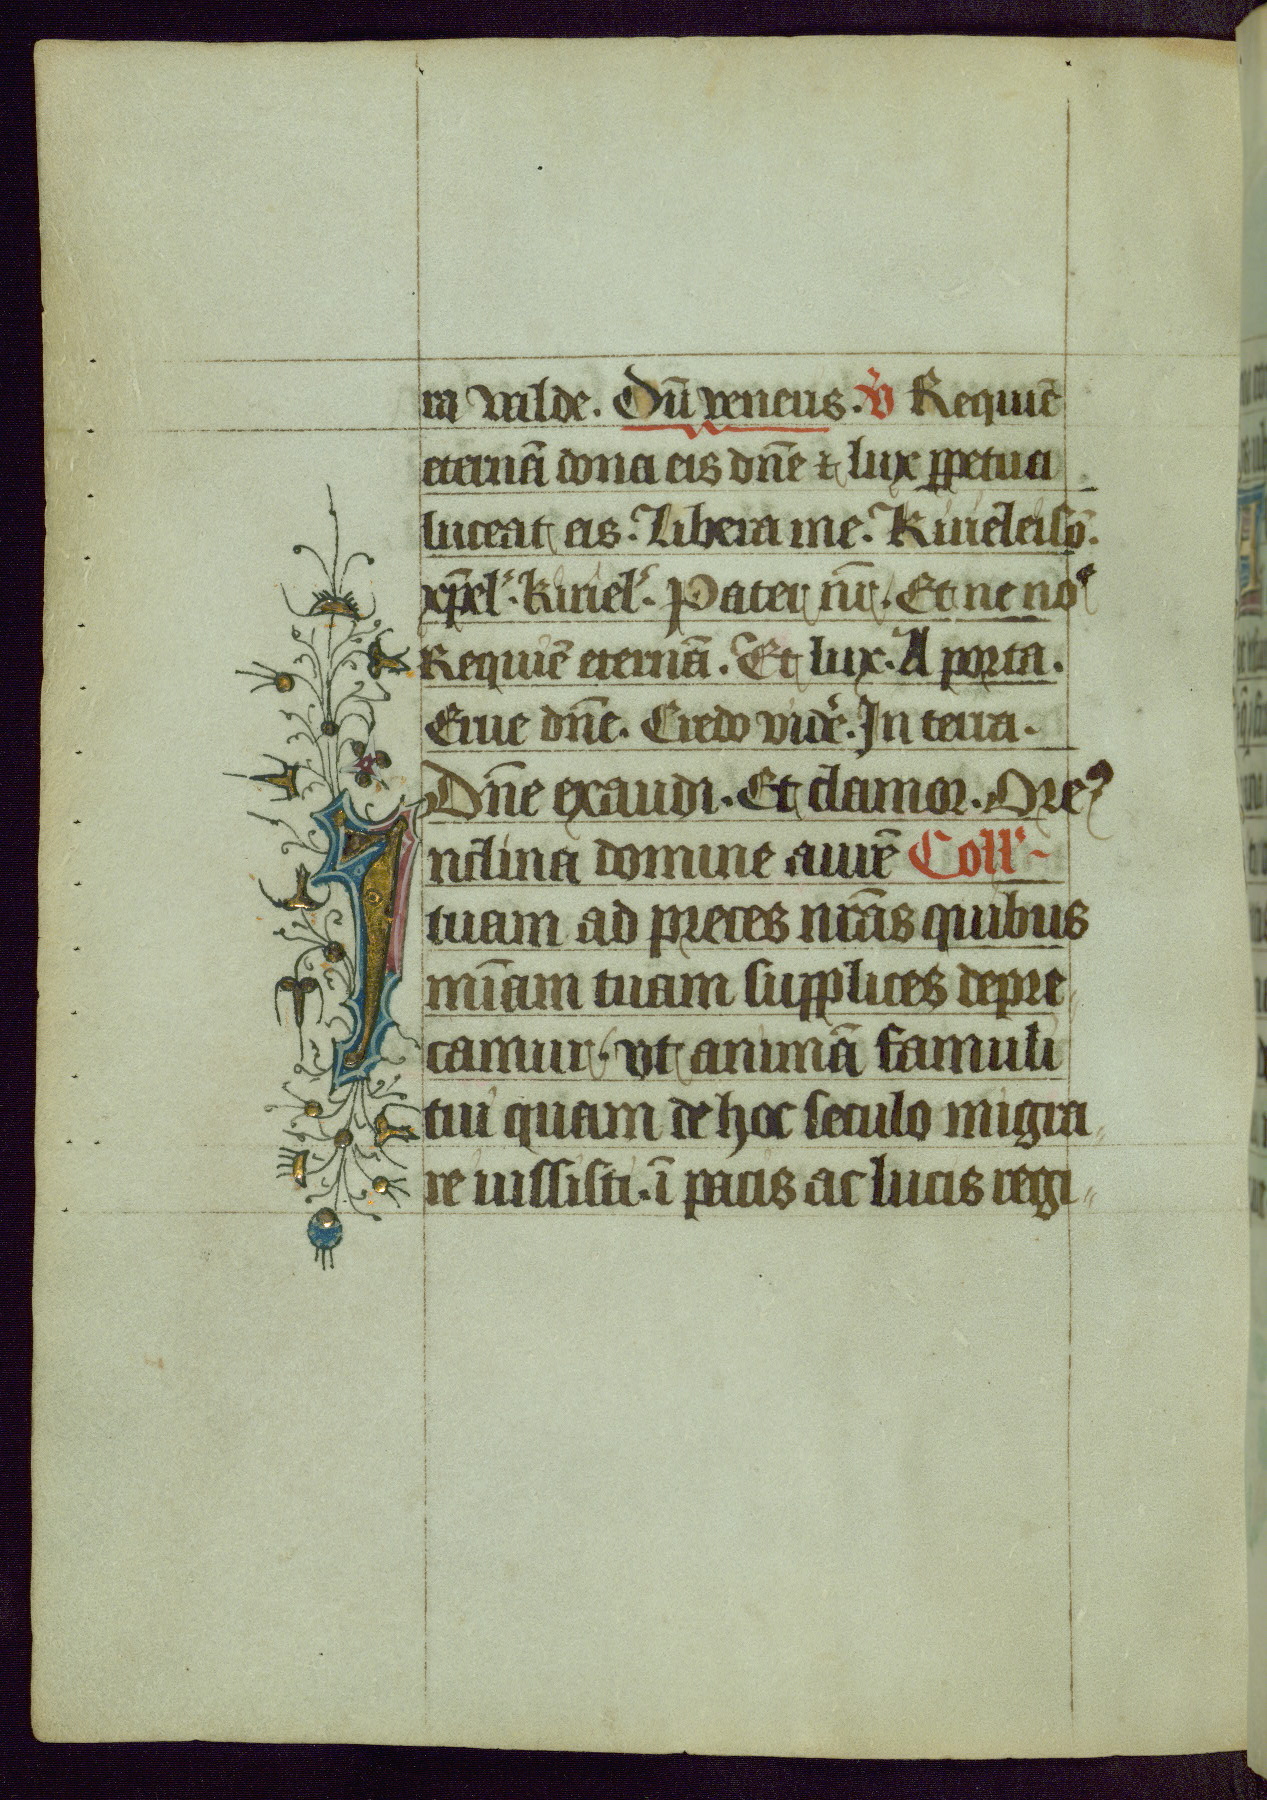 ra valde. Dū veneris. v̄ Requiē
eternā dona eis dn̄e ⁊ lux ꝑpetua
luceat eis. Libera me. Kirieleisō.
xp̄el'. kiriel'. Pater nr̄. Et ne nos
Requiē eternā. Et lux. A porta.
Erue dn̄e. Credo vidē. In terra.
Dn̄e exaudi. Et clamor. Orem9
Inclina domine aurē Coll'
tuam ad preces nr̄as quibus
mīam tuam supplices depre
camur. vt animā famuli
tui quam de hoc seculo migra
re iussisti. ī pacis ac lucis regi